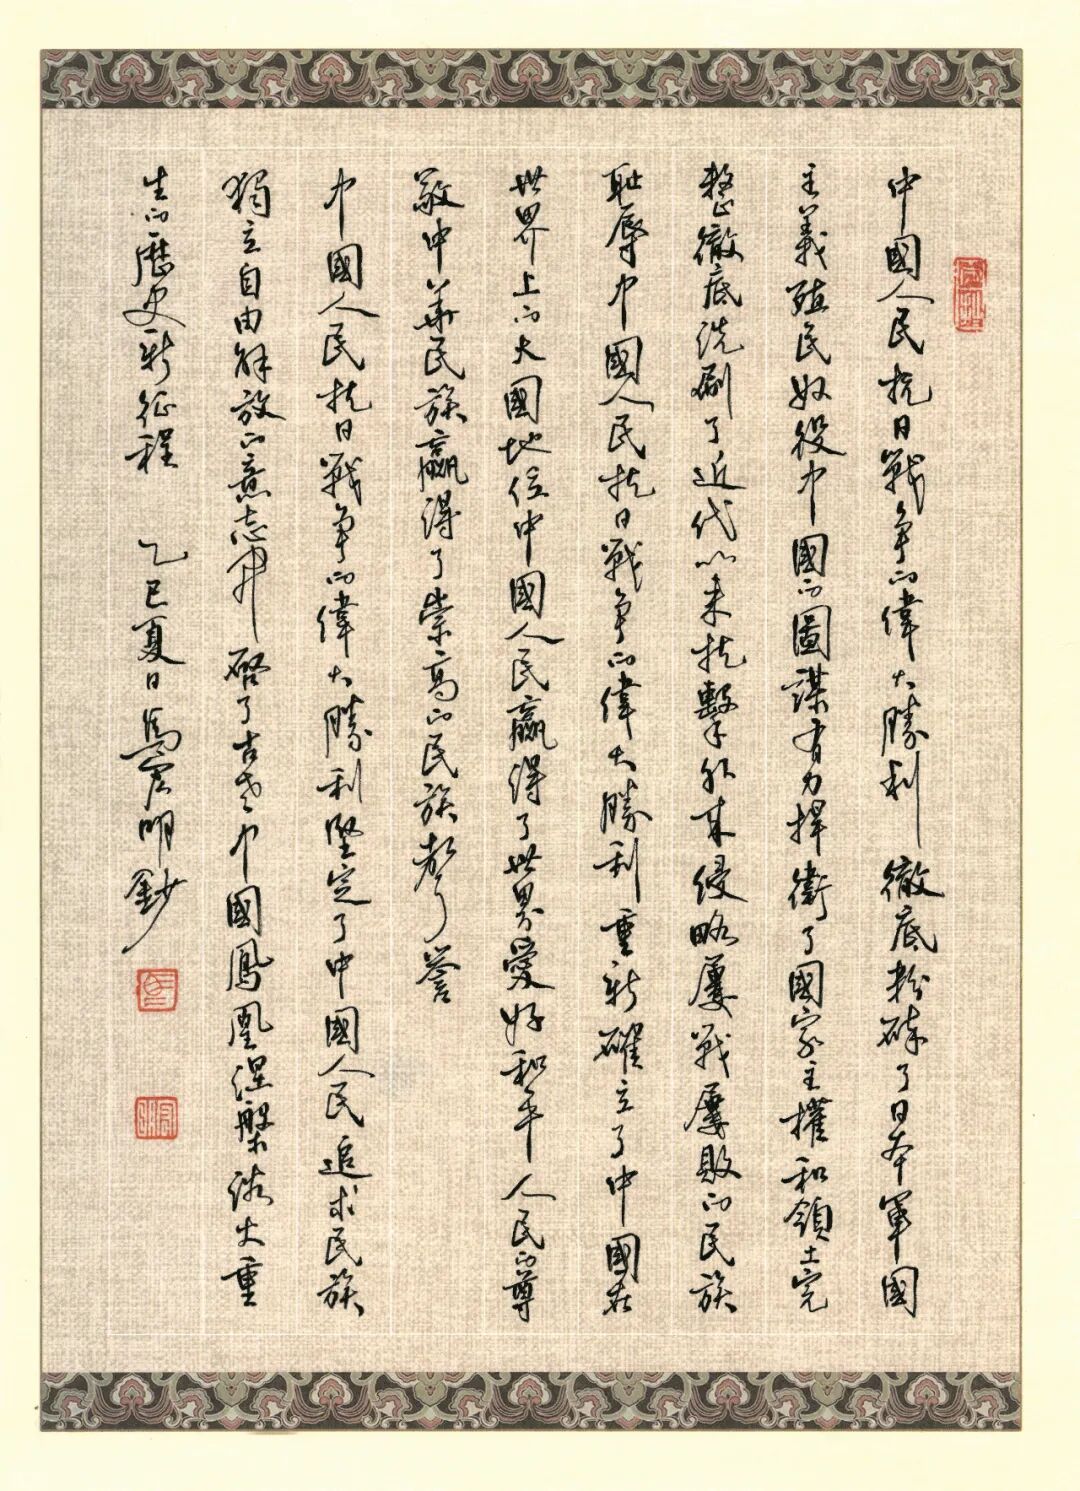 中國人民抗日戰爭的偉大勝利徹底粉碎了日本軍國
主義殖民奴役中國的圖謀有力捍衛了國家主權和領土完
整徹底洗刷了近代以來抗擊外來侵略屢戰屢敗的民族
恥辱中國人民抗日戰爭的偉大勝利重新確立了中國在
世界上的大國地位中國人民贏得了世界愛好和平人民的尊
敬中華民族贏得了崇高的民族聲譽
中國人民抗日戰爭的偉大勝利堅定了中國人民追求民族
獨立自由解放的意志開啓了古老中國鳳凰涅槃浴火重
生的歷史新征程 乙巳夏日馬震明鈔